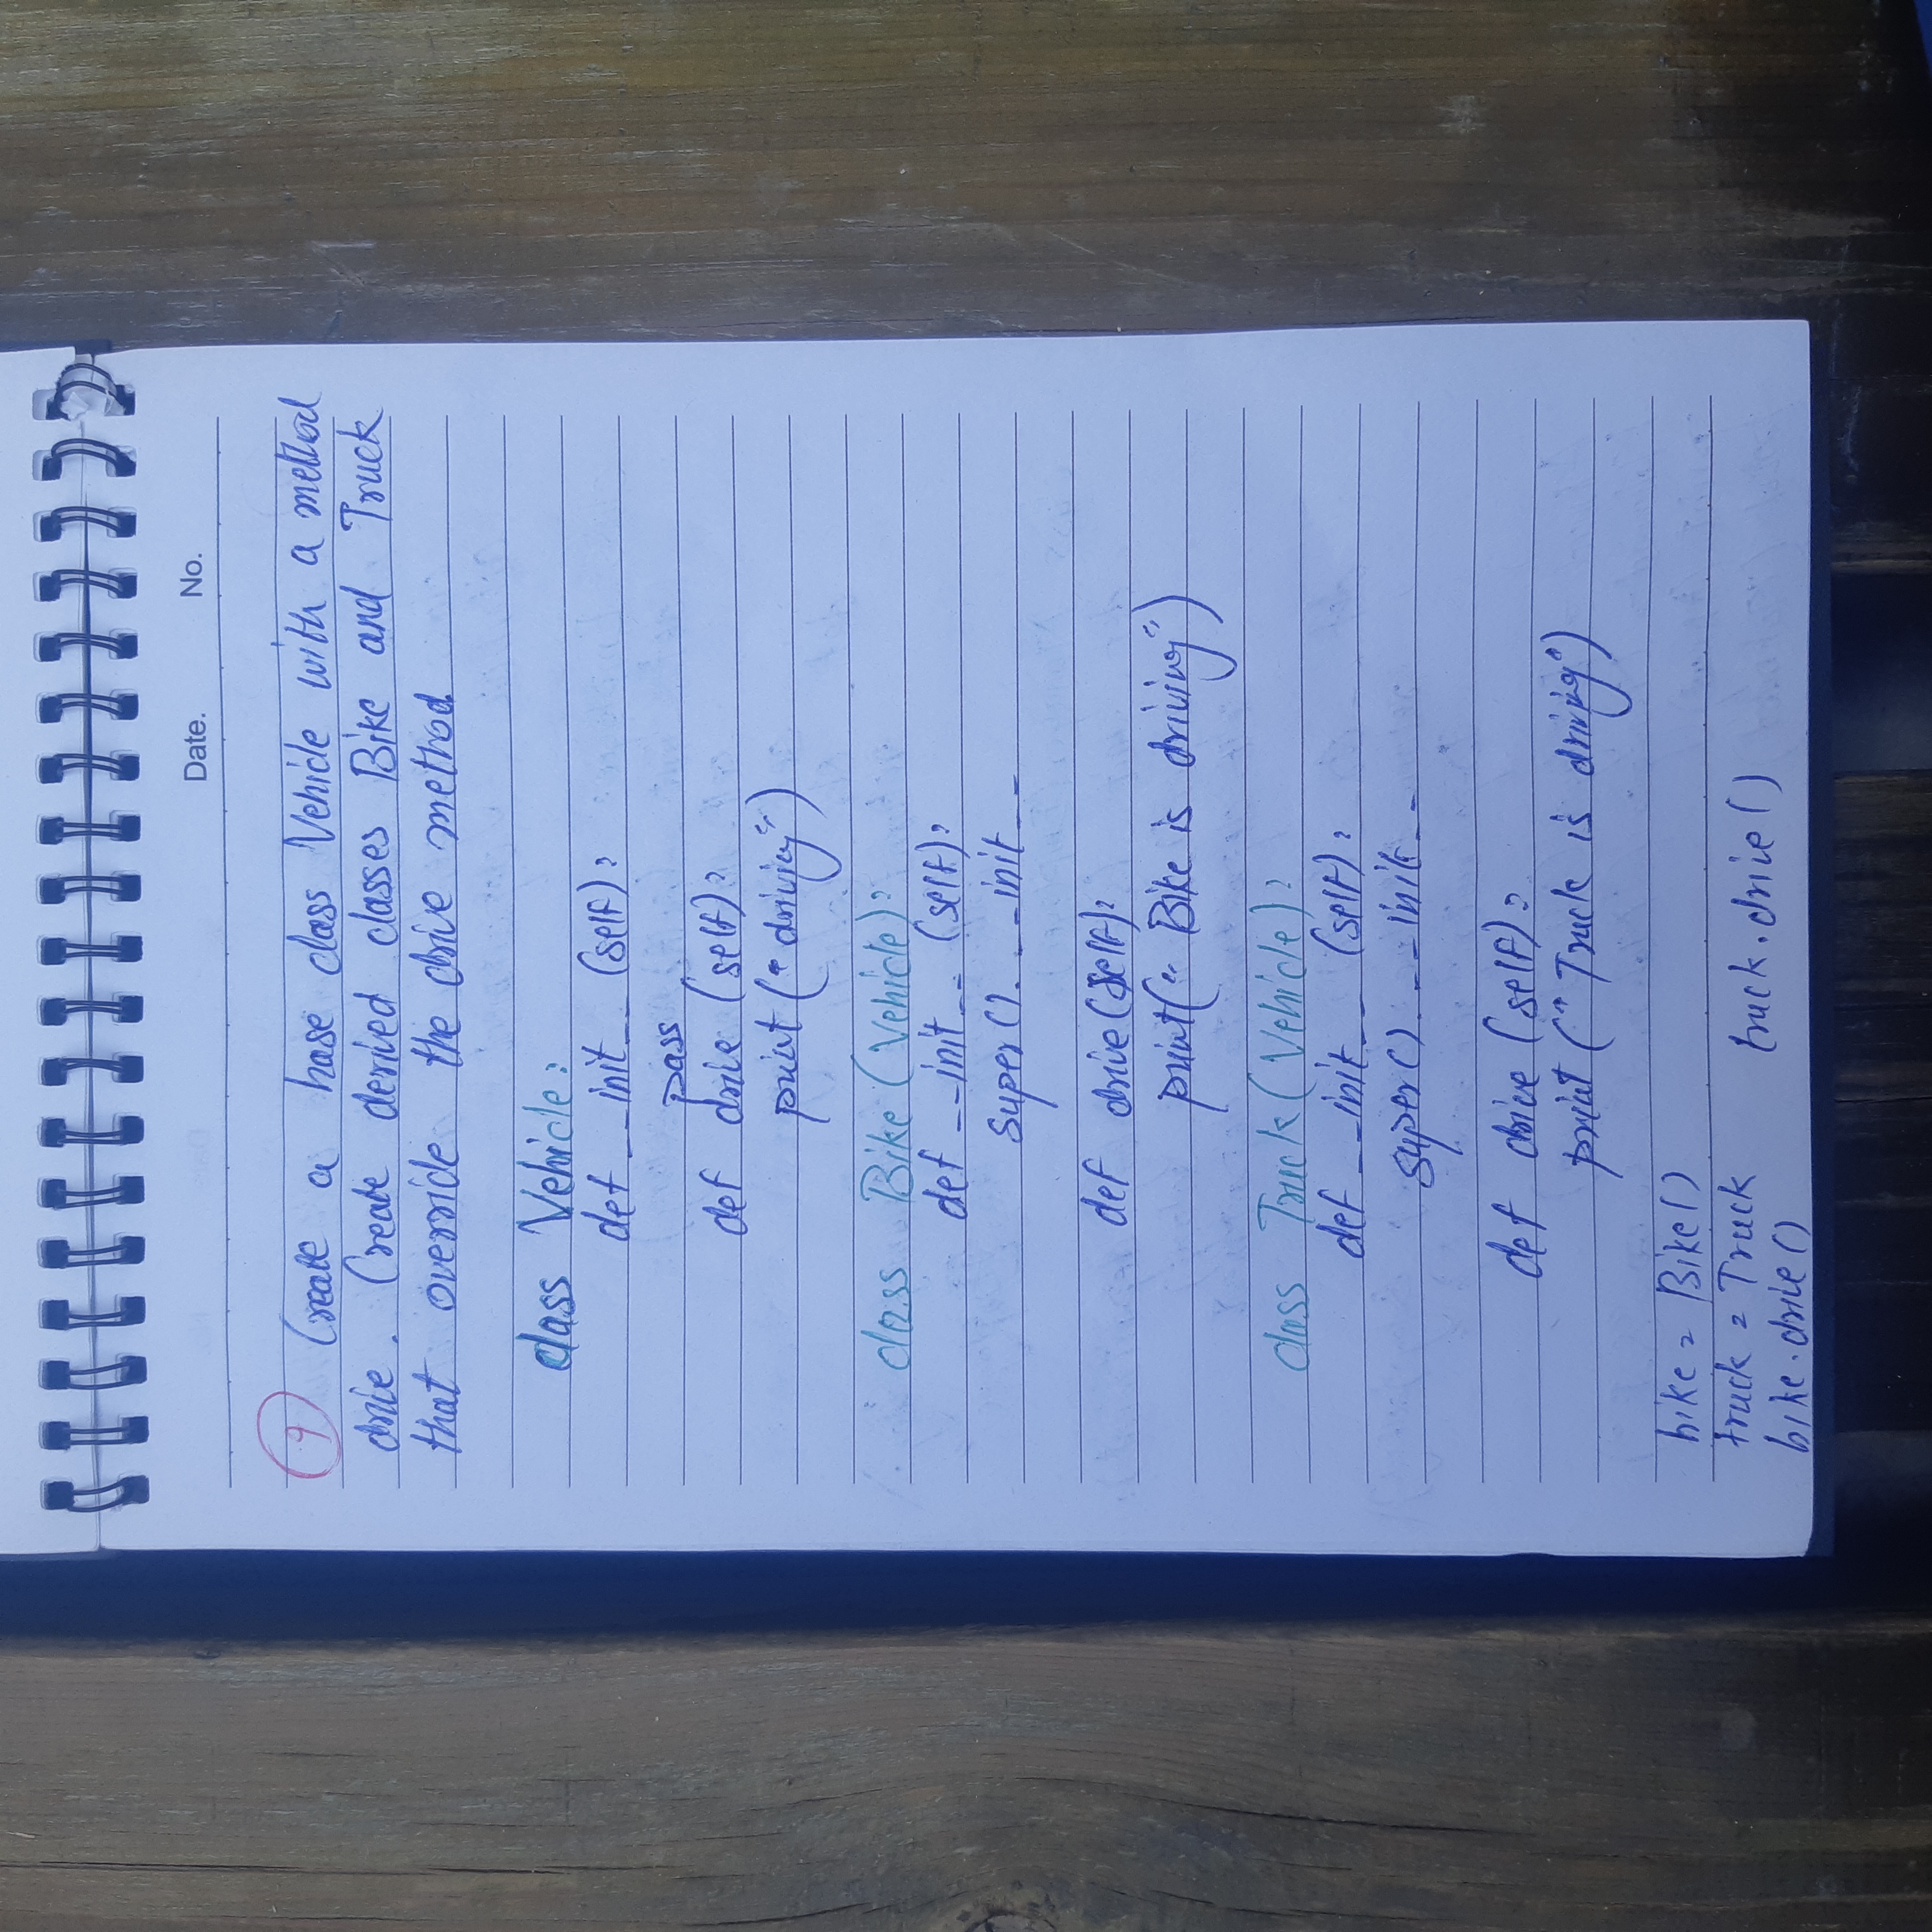 Date. No.
9 Create a base class Vehicle with a method
drive. Create derived classes Bike and Truck
that override the drive method
class Vehicle:
def __init__ (self):
pass
def drive (self):
print ("driving")
class Bike (Vehicle):
def __init__ (self):
super(). __init__
def drive (self):
print(" Bike is driving")
class Truck (Vehicle):
def __init__ (self):
super() __init__
def drive (self):
print (" Truck is driving")
bike = Bike()
truck = Truck
bike.drive() truck.drive()